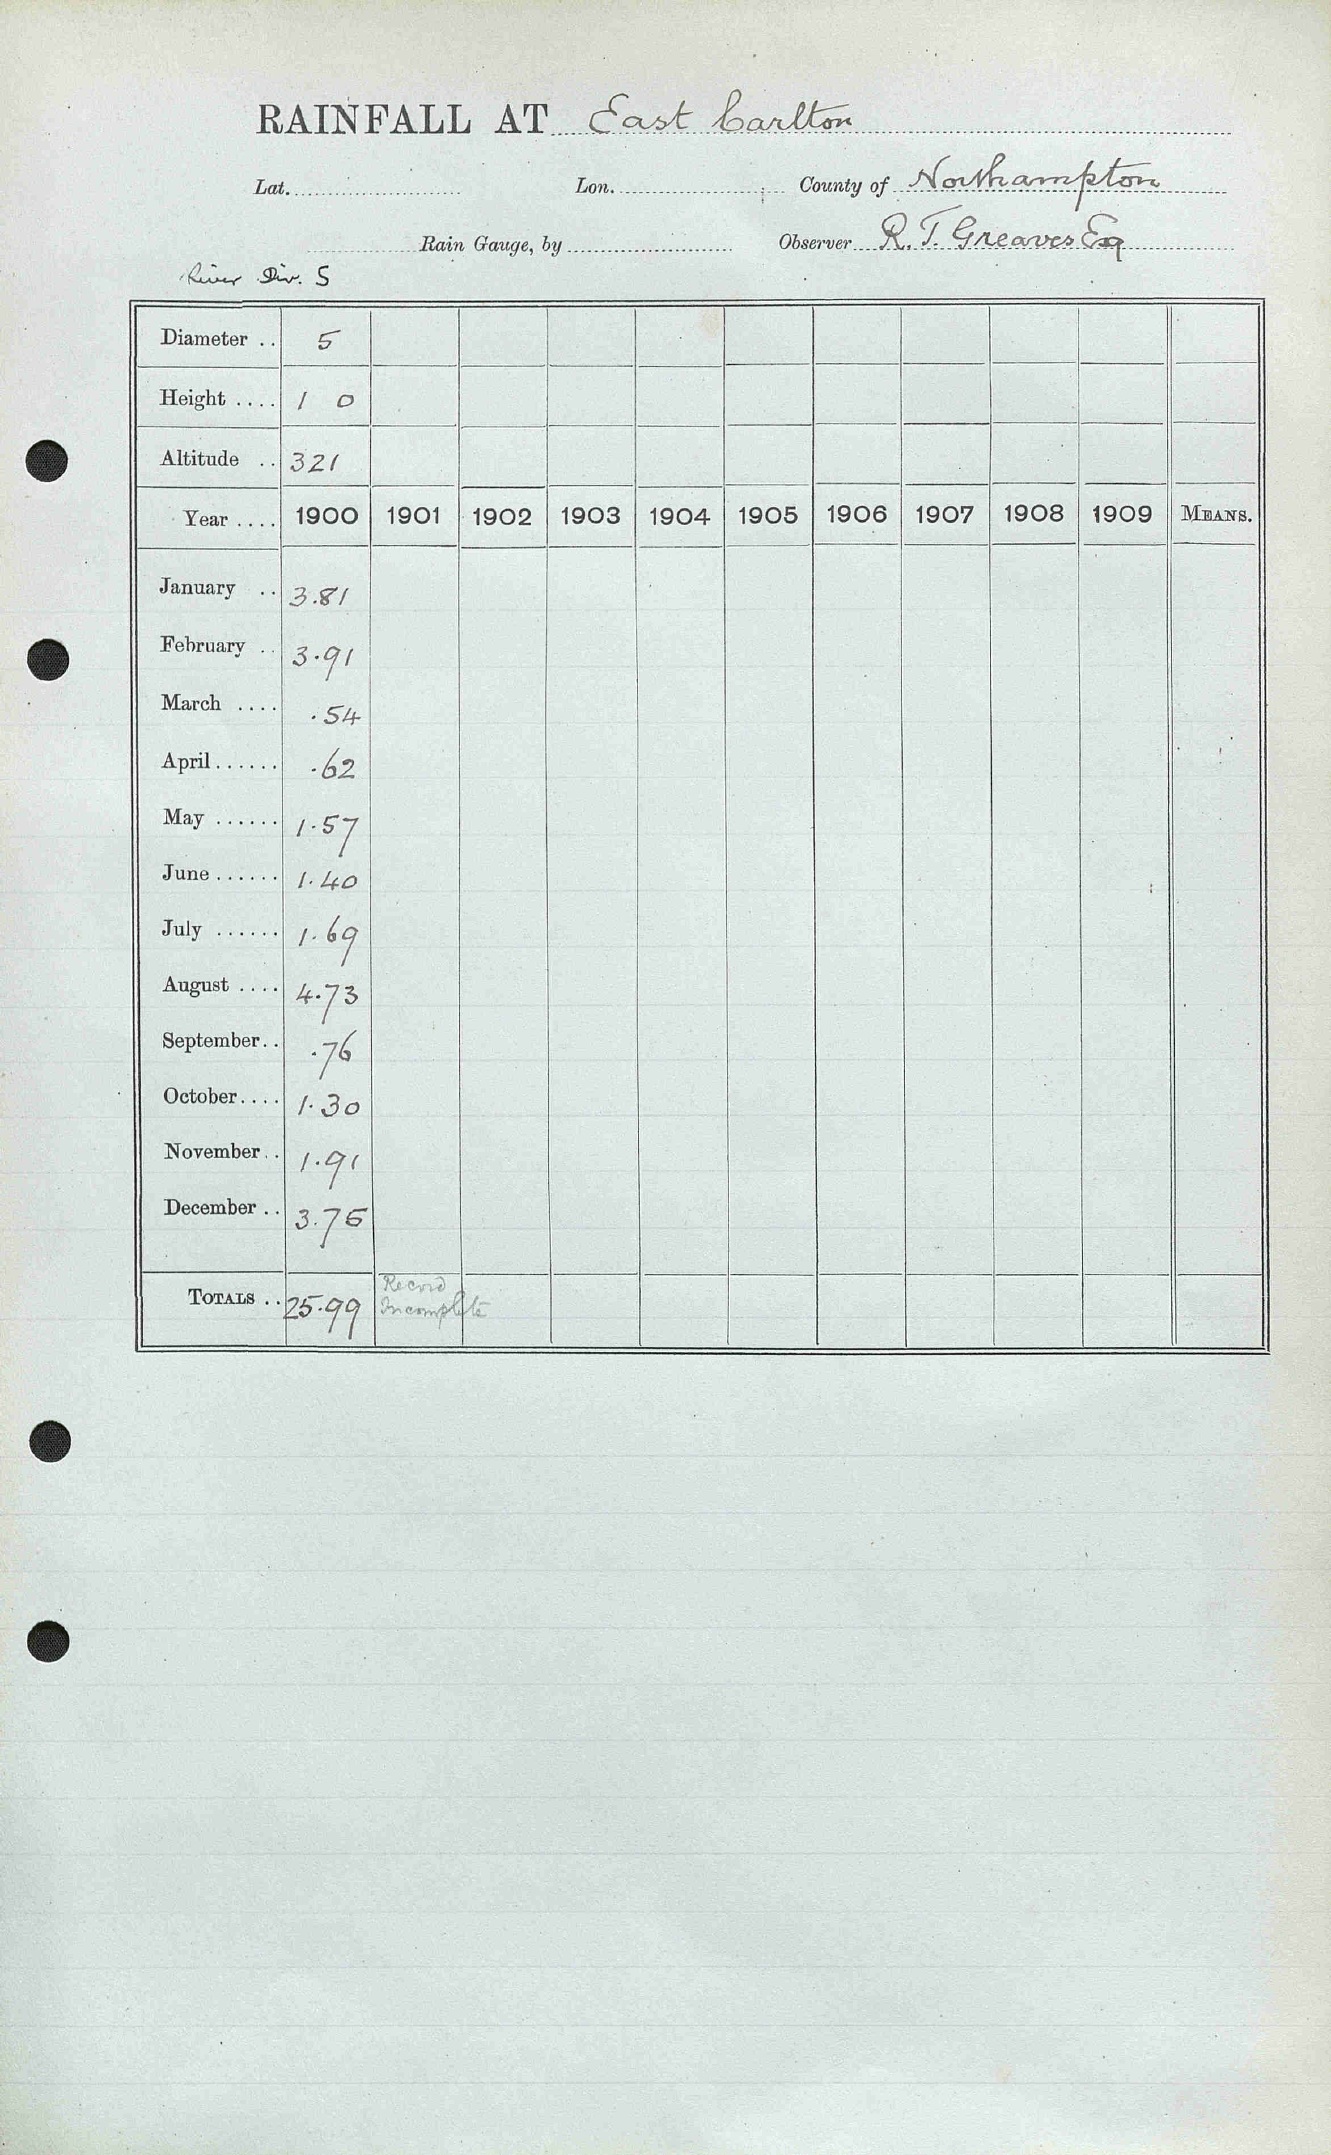 RAINFALL AT East Carlton
Lat. Lon. County of Northampton
Rain Gauge, by Observer R. T. Greaves Esq
River Div. 5
Diameter .. 5
Height .... 1 0
Altitude .. 321
Year .... 1900 1901 1902 1903 1904 1905 1906 1907 1908 1909 MEANS.
January .. 3.81
February .. 3.91
March .... .54
April...... .62
May ...... 1.57
June ...... 1.40
July ...... 1.69
August .... 4.73
September.. .76
October.... 1.30
November.. 1.91
December .. 3.75
TOTALS .. 25.99 Record
Incomplete